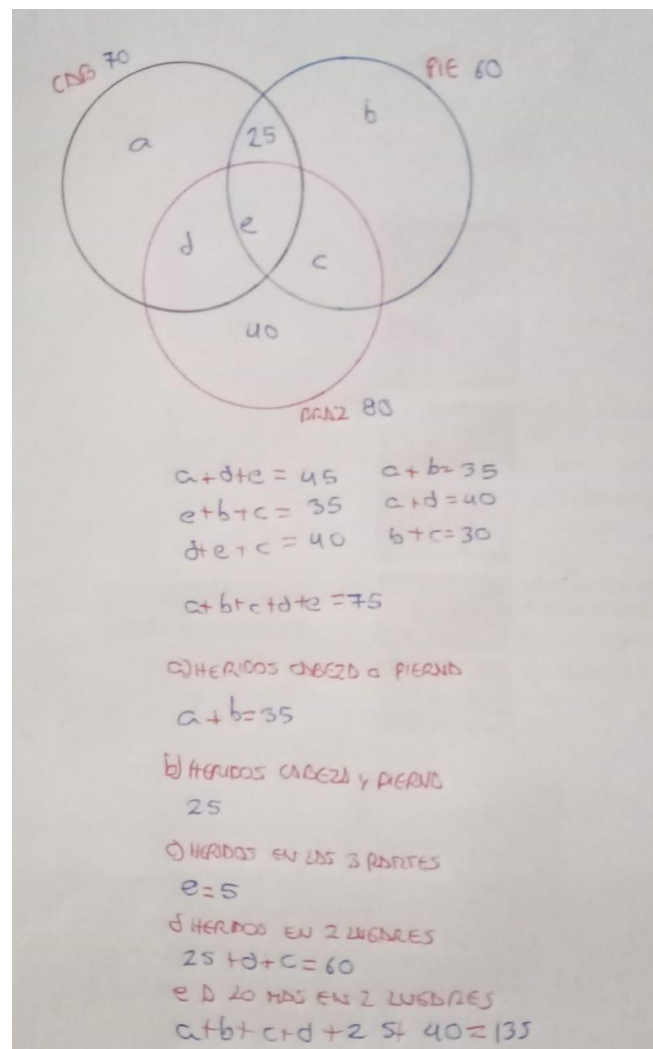 CAB 70
PIE 60
a
25
b
d
e
c
40
BRAZ 80
a+d+e = 45
a+b=35
e+b+c = 35
a+d=40
d+e+c = 40
b+c=30
a+b+c+d+e=75
a) HERIDOS CABEZA o PIERNA
a+b=35
b) HERIDOS CABEZA y PIERNA
25
c) HERIDOS EN LAS 3 PARTES
e=5
d HERIDOS EN 2 LUGARES
25+d+c=60
e A LO MAS EN 2 LUGARES
a+b+c+d+25+40=135